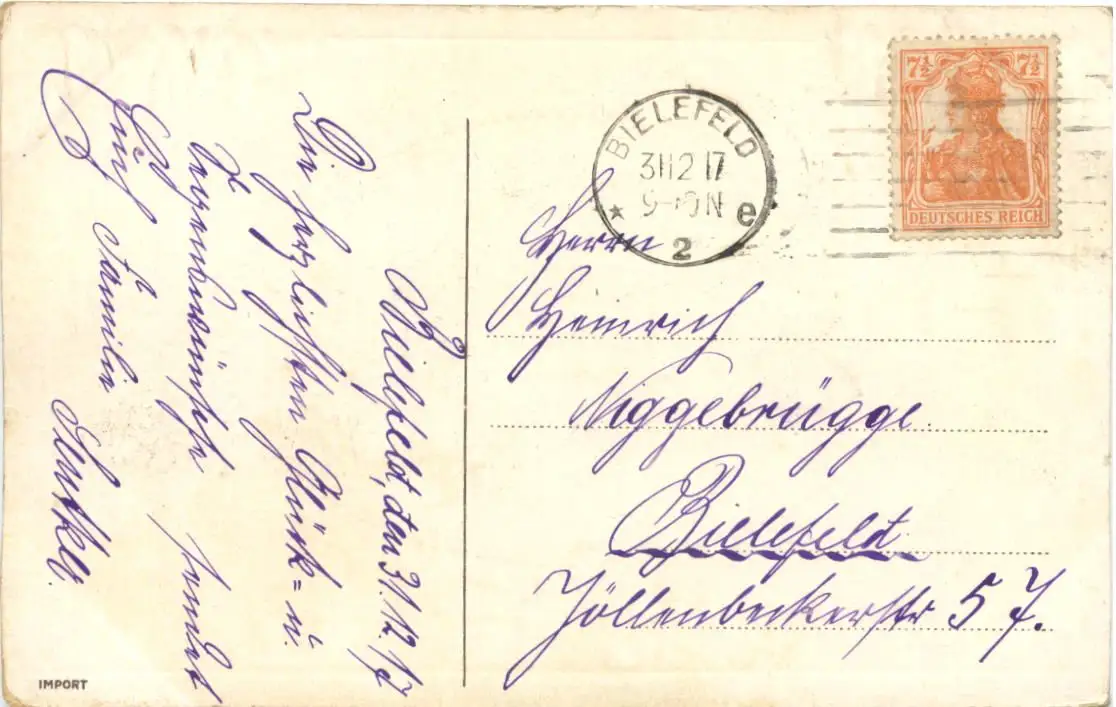 Bielefeld, den 31.12.17
Die herzlichsten Glück= u.
Segenswünsche sendet
Euch Familie
BIELEFELD
31 12 17
9-10 N
* 2 e
7½ 7½
DEUTSCHES REICH
Herrn
Heinrich
Niggebrügge.
Bielefeld
Jöllenbeckerstr 57.
IMPORT